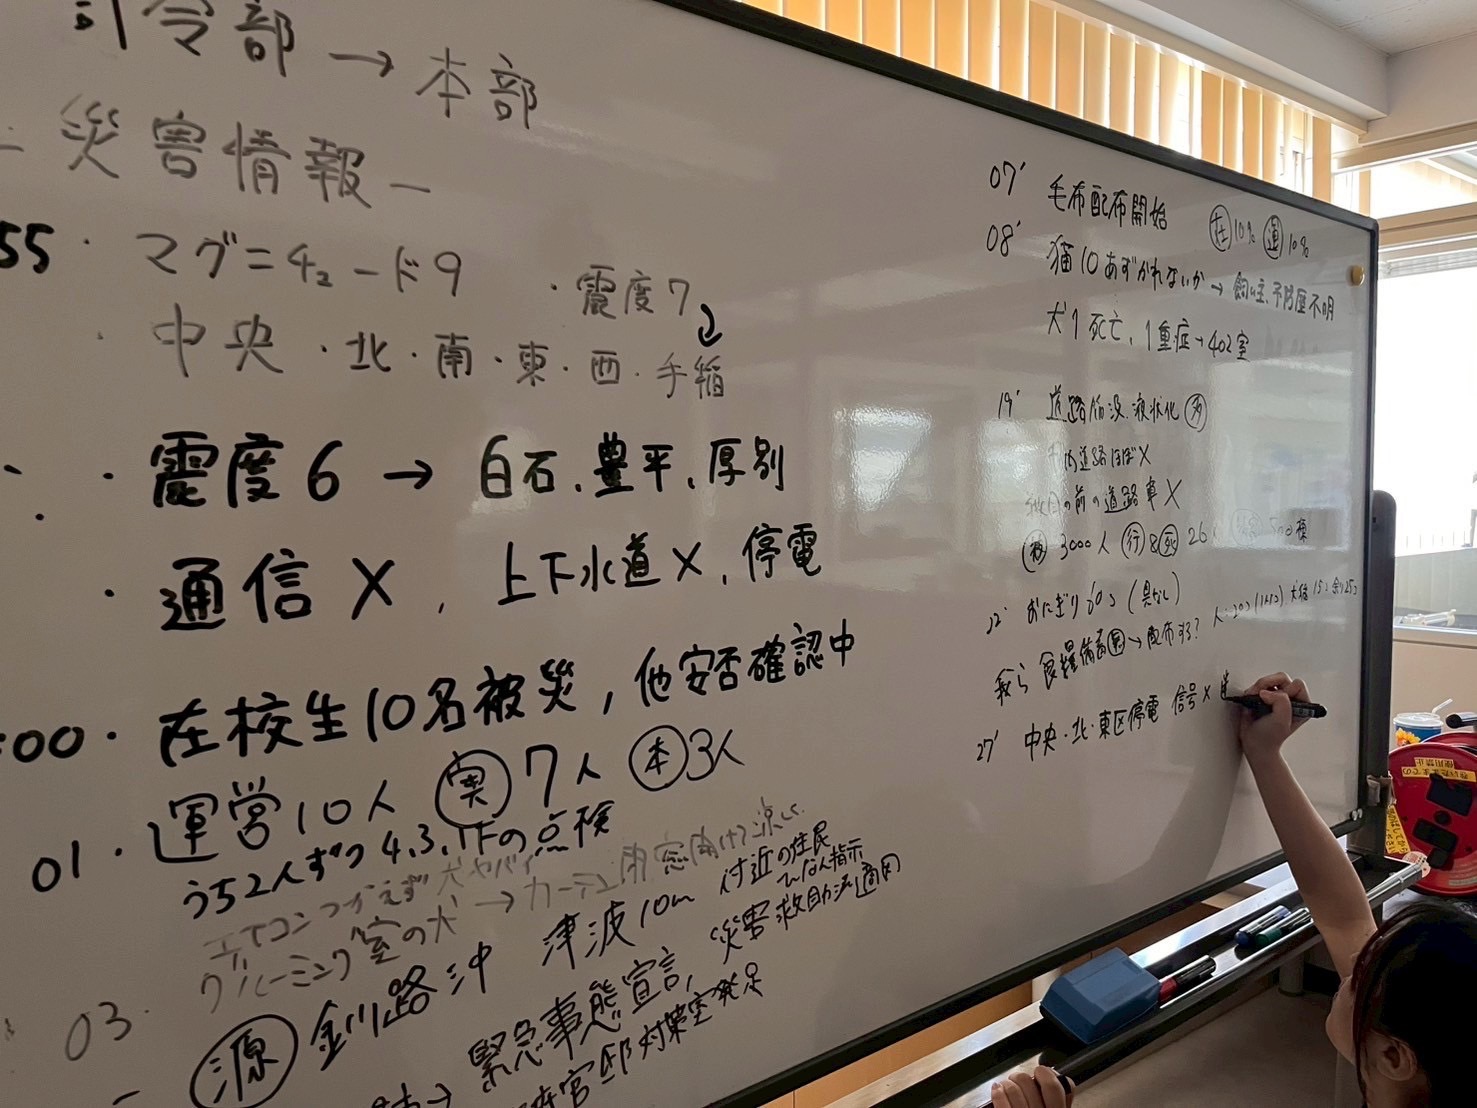 司令部 → 本部
- 災害情報 -
55 ・ マグニチュード9 ・震度7
・ 中央・北・南・東・西・手稲
・震度6 → 白石、豊平、厚別
・通信 X , 上下水道 X 、停電
:00 ・ 在校生10名被災, 他安否確認中
運営10人 実 7人 本 3人
01 ・ うち2人ずつ 4、3、1Fの点検
エアコンつかえず犬ヤバイ
グルーミング室の犬 → カーテン
03 ・ 源 釧路沖 津波10m 付近の住民 ひなん指示
→ 緊急事態宣言, 災害救助法適用
官邸対策室発足
07' 毛布配布開始 在10% 運10%
08' 猫10 あずかれないか → 飼い主、予防歴不明
犬1 死亡、1重症 → 402室
19' 道路陥没、液状化 多
内道路ほぼX
の前の道路 車X
3000人 行 8 死 26
22' おにぎり (具なし)
食糧備蓄 → 配布する?
27' 中央・北・東区停電 信号X